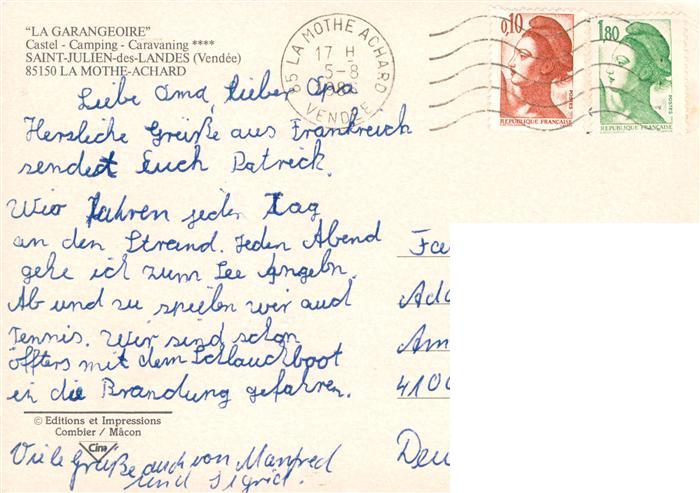 "LA GARANGEOIRE"
Castel - Camping - Caravaning ****
SAINT-JULIEN-des-LANDES (Vendée)
85150 LA MOTHE-ACHARD
85 LA MOTHE ACHARD
17 H
5-8
VENDÉE
0,10
POSTES
REPUBLIQUE FRANÇAISE
1,80
POSTES
REPUBLIQUE FRANÇAISE
Liebe Oma, lieber Opa
Herzliche Grüße aus Frankreich
sendet Euch Patrick.
Wir fahren jeden Tag
an den Strand. Jeden Abend
gehe ich zum See Angeln.
Ab und zu spielen wir auch
Tennis. Wir sind schon
öffters mit dem Schlauchboot
in die Brandung gefahren.
© Editions et Impressions
Combier / Mâcon
Cim
Viele Grüße auch von Manfred
und Sigrid.
Fa
Ad
Am
410
Deu